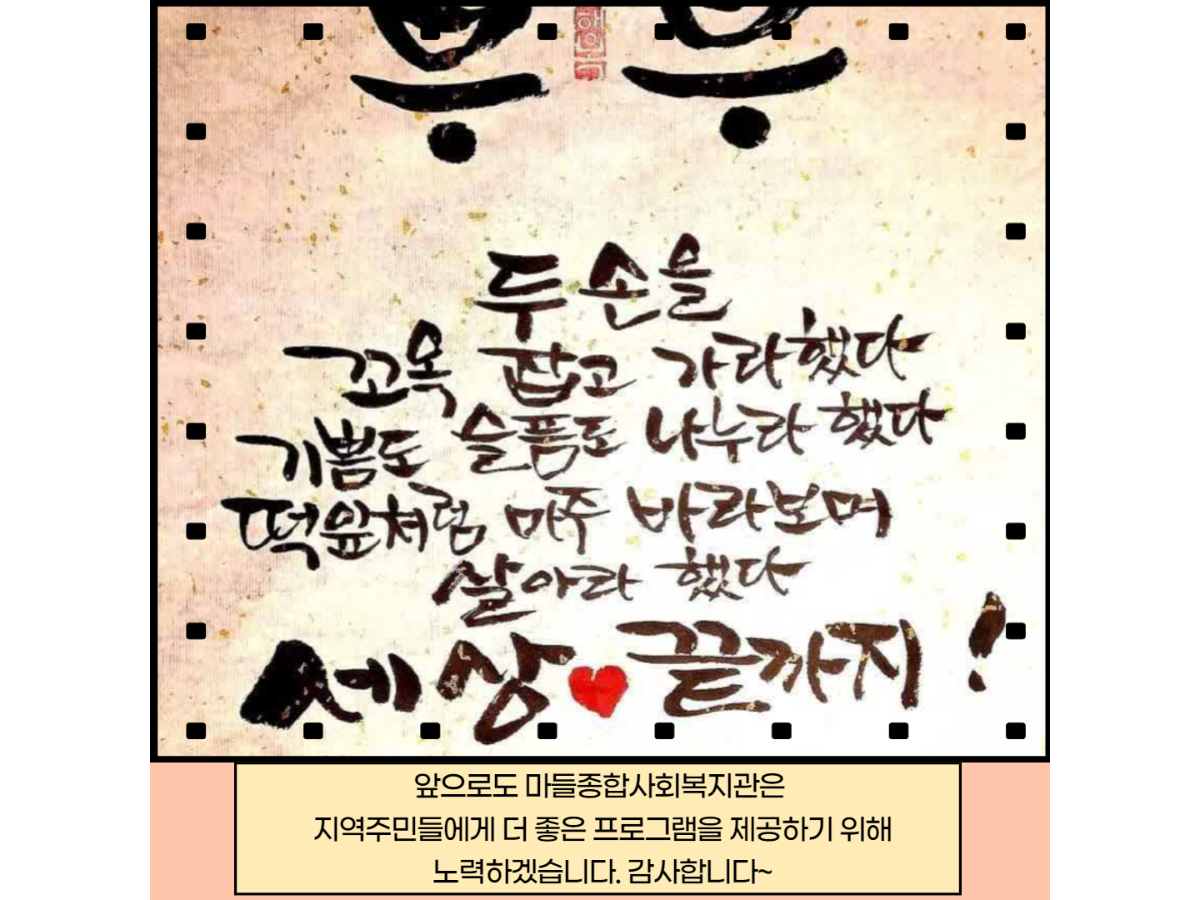 부 부
두 손을
꼬옥 잡고 가라했다
기쁨도 슬픔도 나누라 했다
떡잎처럼 마주 바라보며
살아라 했다
세상 끝까지!
앞으로도 마들종합사회복지관은
지역주민들에게 더 좋은 프로그램을 제공하기 위해
노력하겠습니다. 감사합니다~